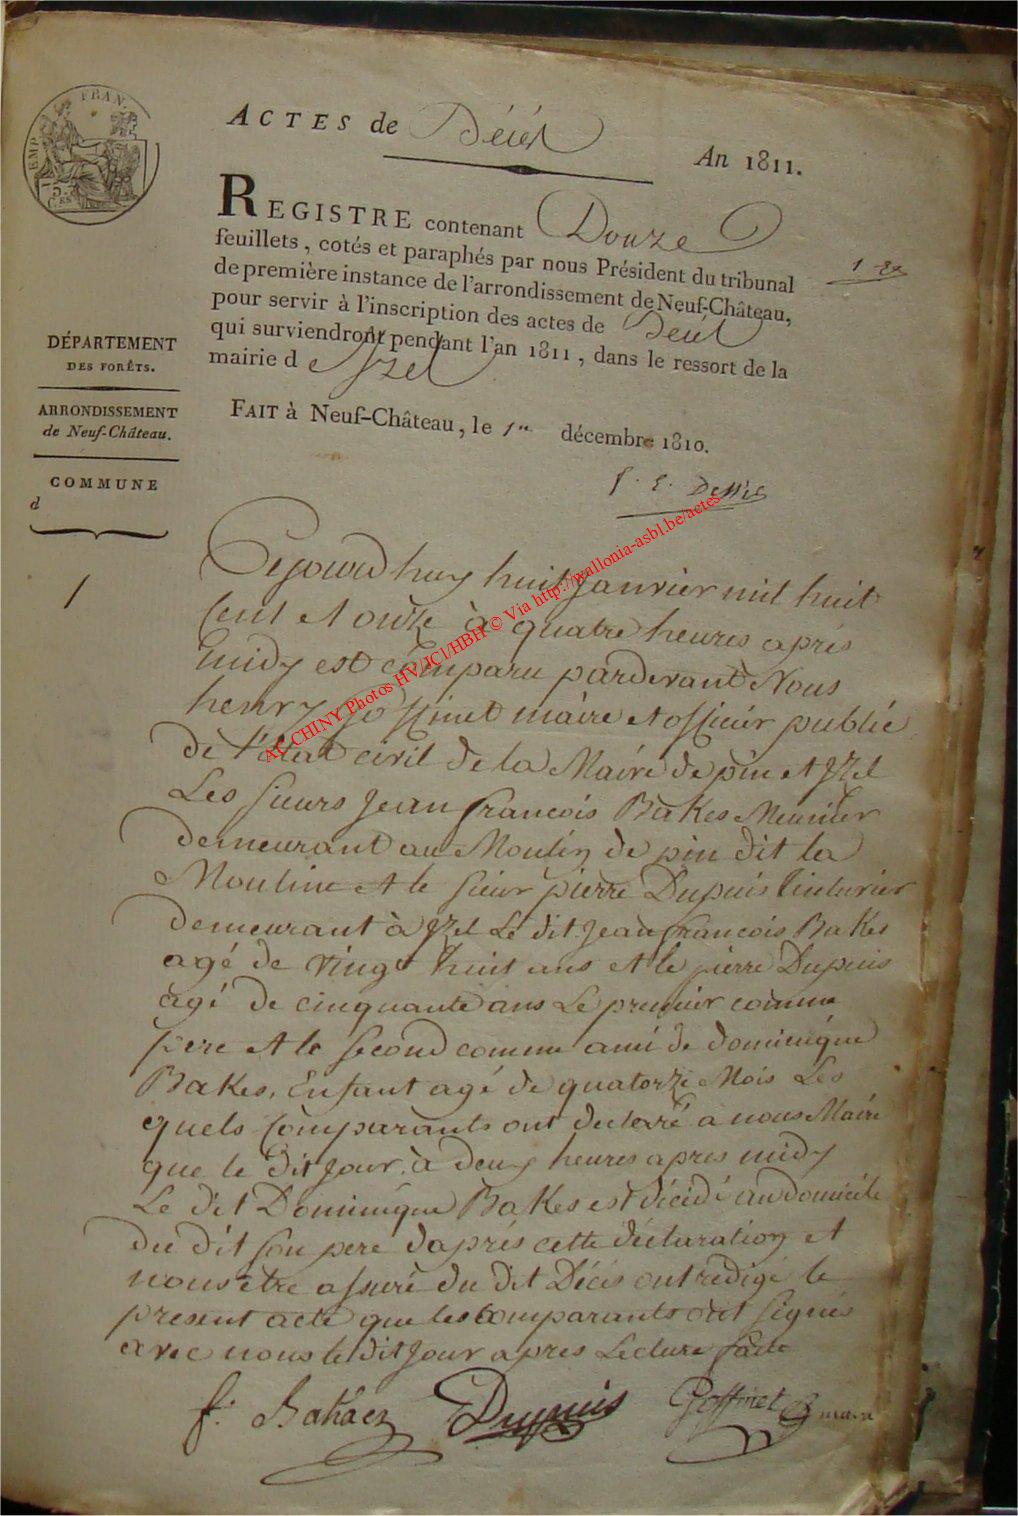 EMP. FRAN.
75.
C.ES
ACTES de Décès
An 1811.
REGISTRE contenant Douze
feuillets, cotés et paraphés par nous Président du tribunal
de première instance de l'arrondissement de Neuf-Château,
pour servir à l'inscription des actes de Décès
qui surviendront pendant l'an 1811, dans le ressort de la
mairie d'Izel
FAIT à Neuf-Château, le 1er décembre 1810.
DÉPARTEMENT
DES FORÊTS.
ARRONDISSEMENT
de Neuf-Château.
COMMUNE
d
1
Cejourd huy huit Janvier mil huit
Cent et onze à quatre heures après
midy est comparu pardevant Nous
henry Goffinet maire et officier public
de l'état civil de la Mairé de pin et Izel
Les sieurs Jean françois Bakes Meunier
demeurant au Moulin de pin dit la
Mouline et le sieur pierre Dupuis tinturier
demeurant à Izel Le dit Jean françois Bakes
agé de vingt huit ans et le pierre Dupuis
agé de cinquante ans Le premier comme
pere et le second comme ami de dominique
Bakes, Enfant agé de quatorze Mois Les
quels Comparants ont declaré a nous Maire
que le dit Jour à deux heures apres midy
Le dit Dominique Bakes est décidé au domicile
du dit son pere daprés cette déclaration et
nous être assuré du dit Décés ont redigé le
present acte que les comparants ont signés
avec nous le dit Jour apres Lecture faite
Dupuis Goffinet
AC CHINY Photos HV/JCl/HBH © Via http://wallonia-asbl.be/actes